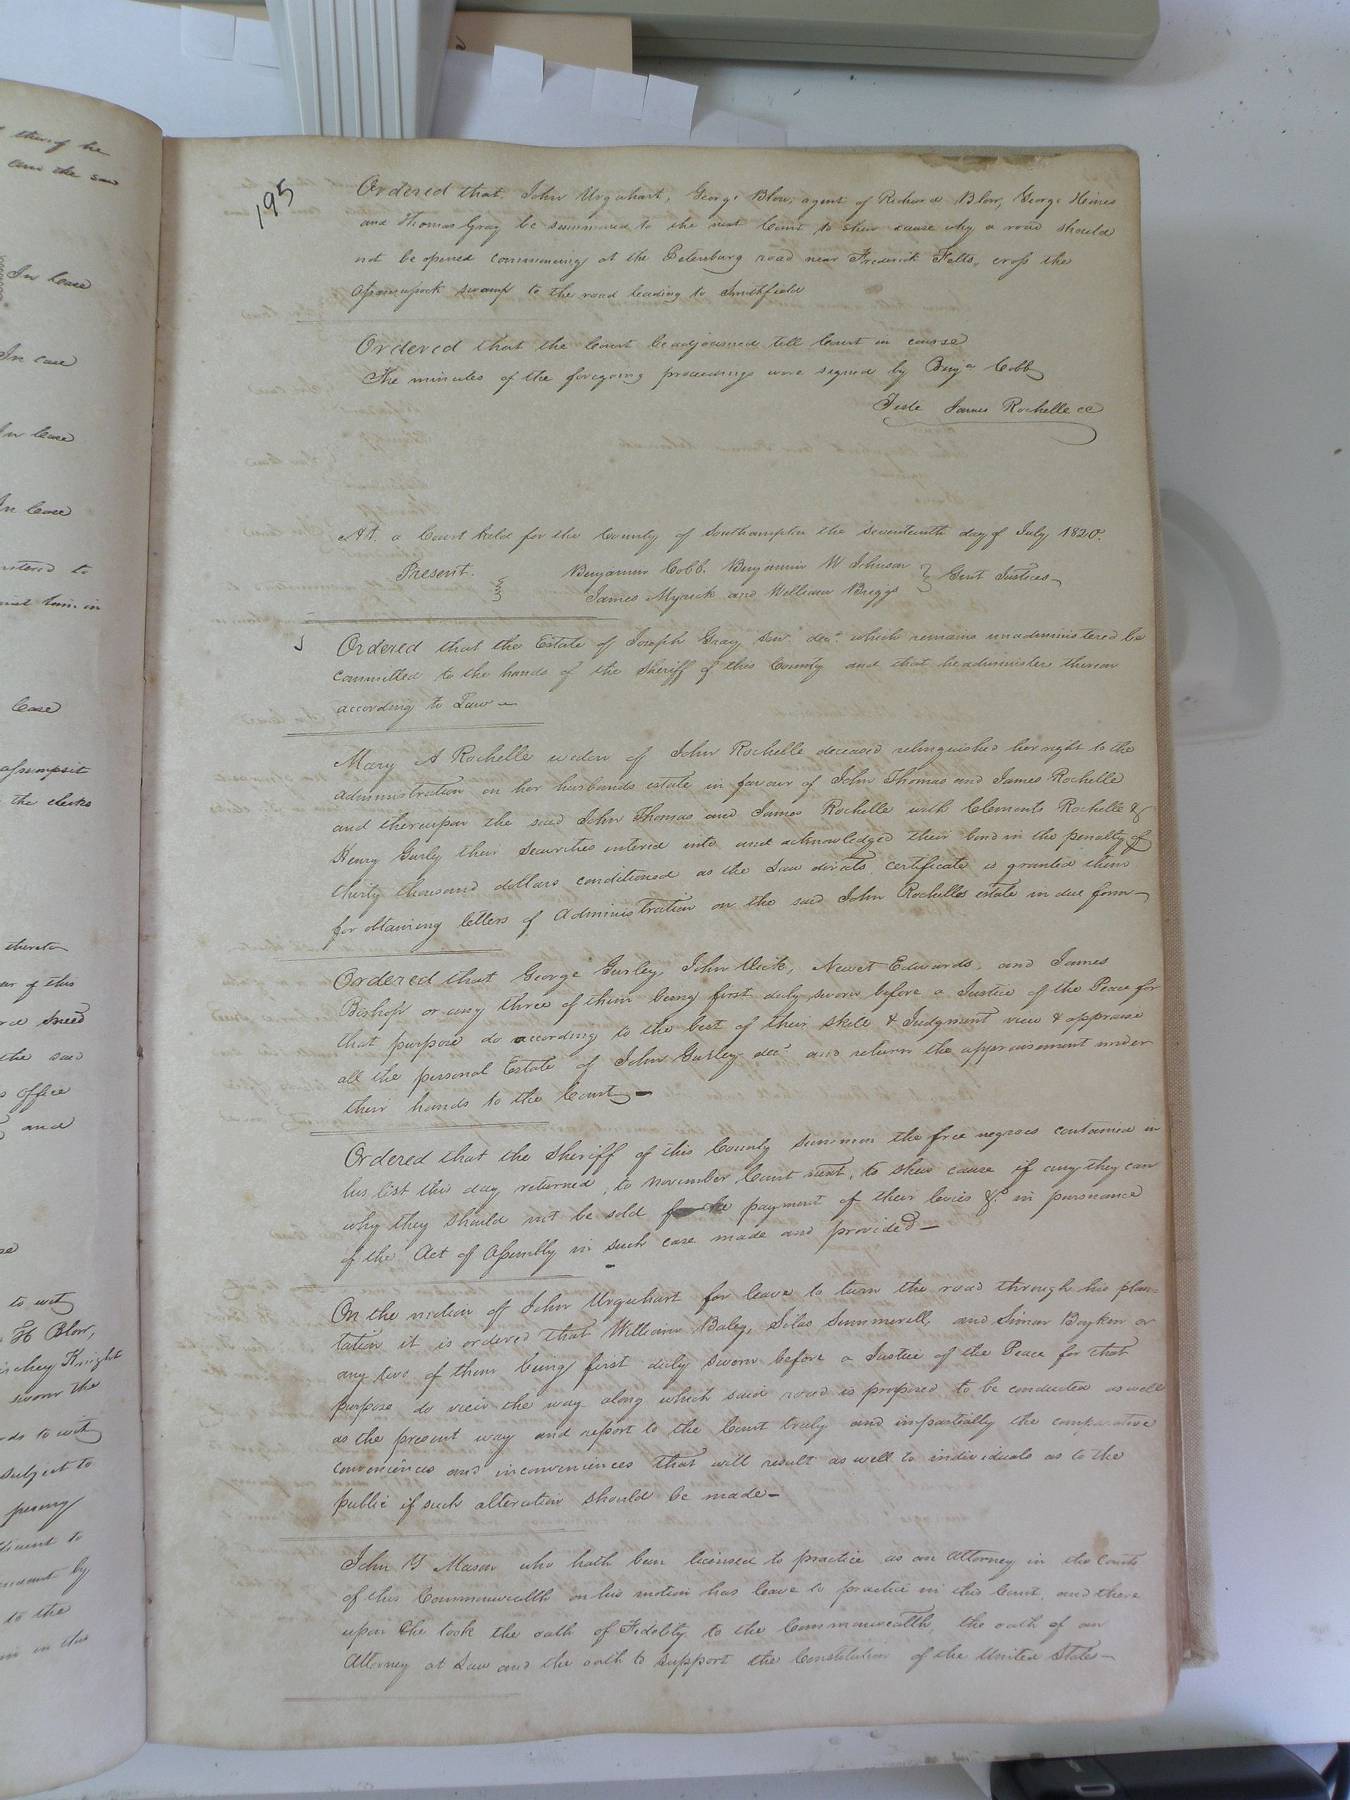 thereof he
and the said
In Case
In case
In Case
In Case
Case
assumpsit
the clerks
thereto
of this
the said
office
and
to wit
H Blow,
Knight
sworn the
to wit
subject to
by
to the
in this
195
Ordered that John Urquhart, George Blow, agent of Richard Blow, George Haines
and Thomas Gray be summoned to the next Court to shew cause why a road should
not be opened commencing at the Petersburg road near Frederick Fells, cross the
Assamusock swamp to the road leading to Smithfield
Ordered that the Court be adjourned till Court in course
The minutes of the foregoing proceedings were signed by Benja Cobb
Teste James Rochelle cc
At a Court held for the County of Southampton the seventeenth day of July 1820.
Present. Benjamin Cobb. Benjamin W Johnson
James Myrick and William Briggs } Gent Justices
Ordered that the Estate of Joseph Gray Senr. decd. which remains unadministered be
committed to the hands of the Sheriff of this County and that he administer thereon
according to Law
Mary A Rochelle widow of John Rochelle deceased relinquished her right to the
administration on her husbands estate in favour of John Thomas and James Rochelle
and thereupon the said John Thomas and James Rochelle with Clements Rochelle &
Henry Gurley their securities entered into and acknowledged their bond in the penalty of
thirty thousand dollars conditioned as the Law directs, certificate is granted them
for obtaining letters of Administration on the said John Rochelles estate in due form
Ordered that George Gurley, John Vick, Newet Edwards, and James
Bishop or any three of them being first duly sworn before a Justice of the Peace for
that purpose do according to the best of their skill & Judgment view & appraise
all the personal Estate of John Gurley decd. and return the appraisement under
their hands to the Court
Ordered that the Sheriff of this County summon the free negroes contained in
his list this day returned, to November Court next, to shew cause if any they can
why they should not be sold for the payment of their levies &c. in pursuance
of the Act of Assembly in such case made and provided
On the motion of John Urquhart for leave to turn the road through his plan-
tation it is ordered that William Baley, Silas Summerell, and Simon Boykin or
any two of them being first duly sworn before a Justice of the Peace for that
purpose do view the way along which said road is proposed to be conducted as well
as the present way and report to the Court truly and impartially the comparative
conveniences and inconveniences that will result as well to individuals as to the
public if such alteration should be made
John Y Mason who hath been licensed to practice as an Attorney in the Courts
of this Commonwealth on his motion has leave to practice in this Court, and there
upon he took the oath of Fidelity to the Commonwealth, the oath of an
Attorney at Law and the oath to support the Constitution of the United States